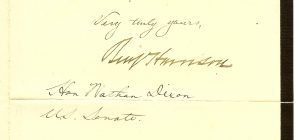 Very truly yours,
Benj Harrison
Hon Nathan Dixon
U.S. Senate.